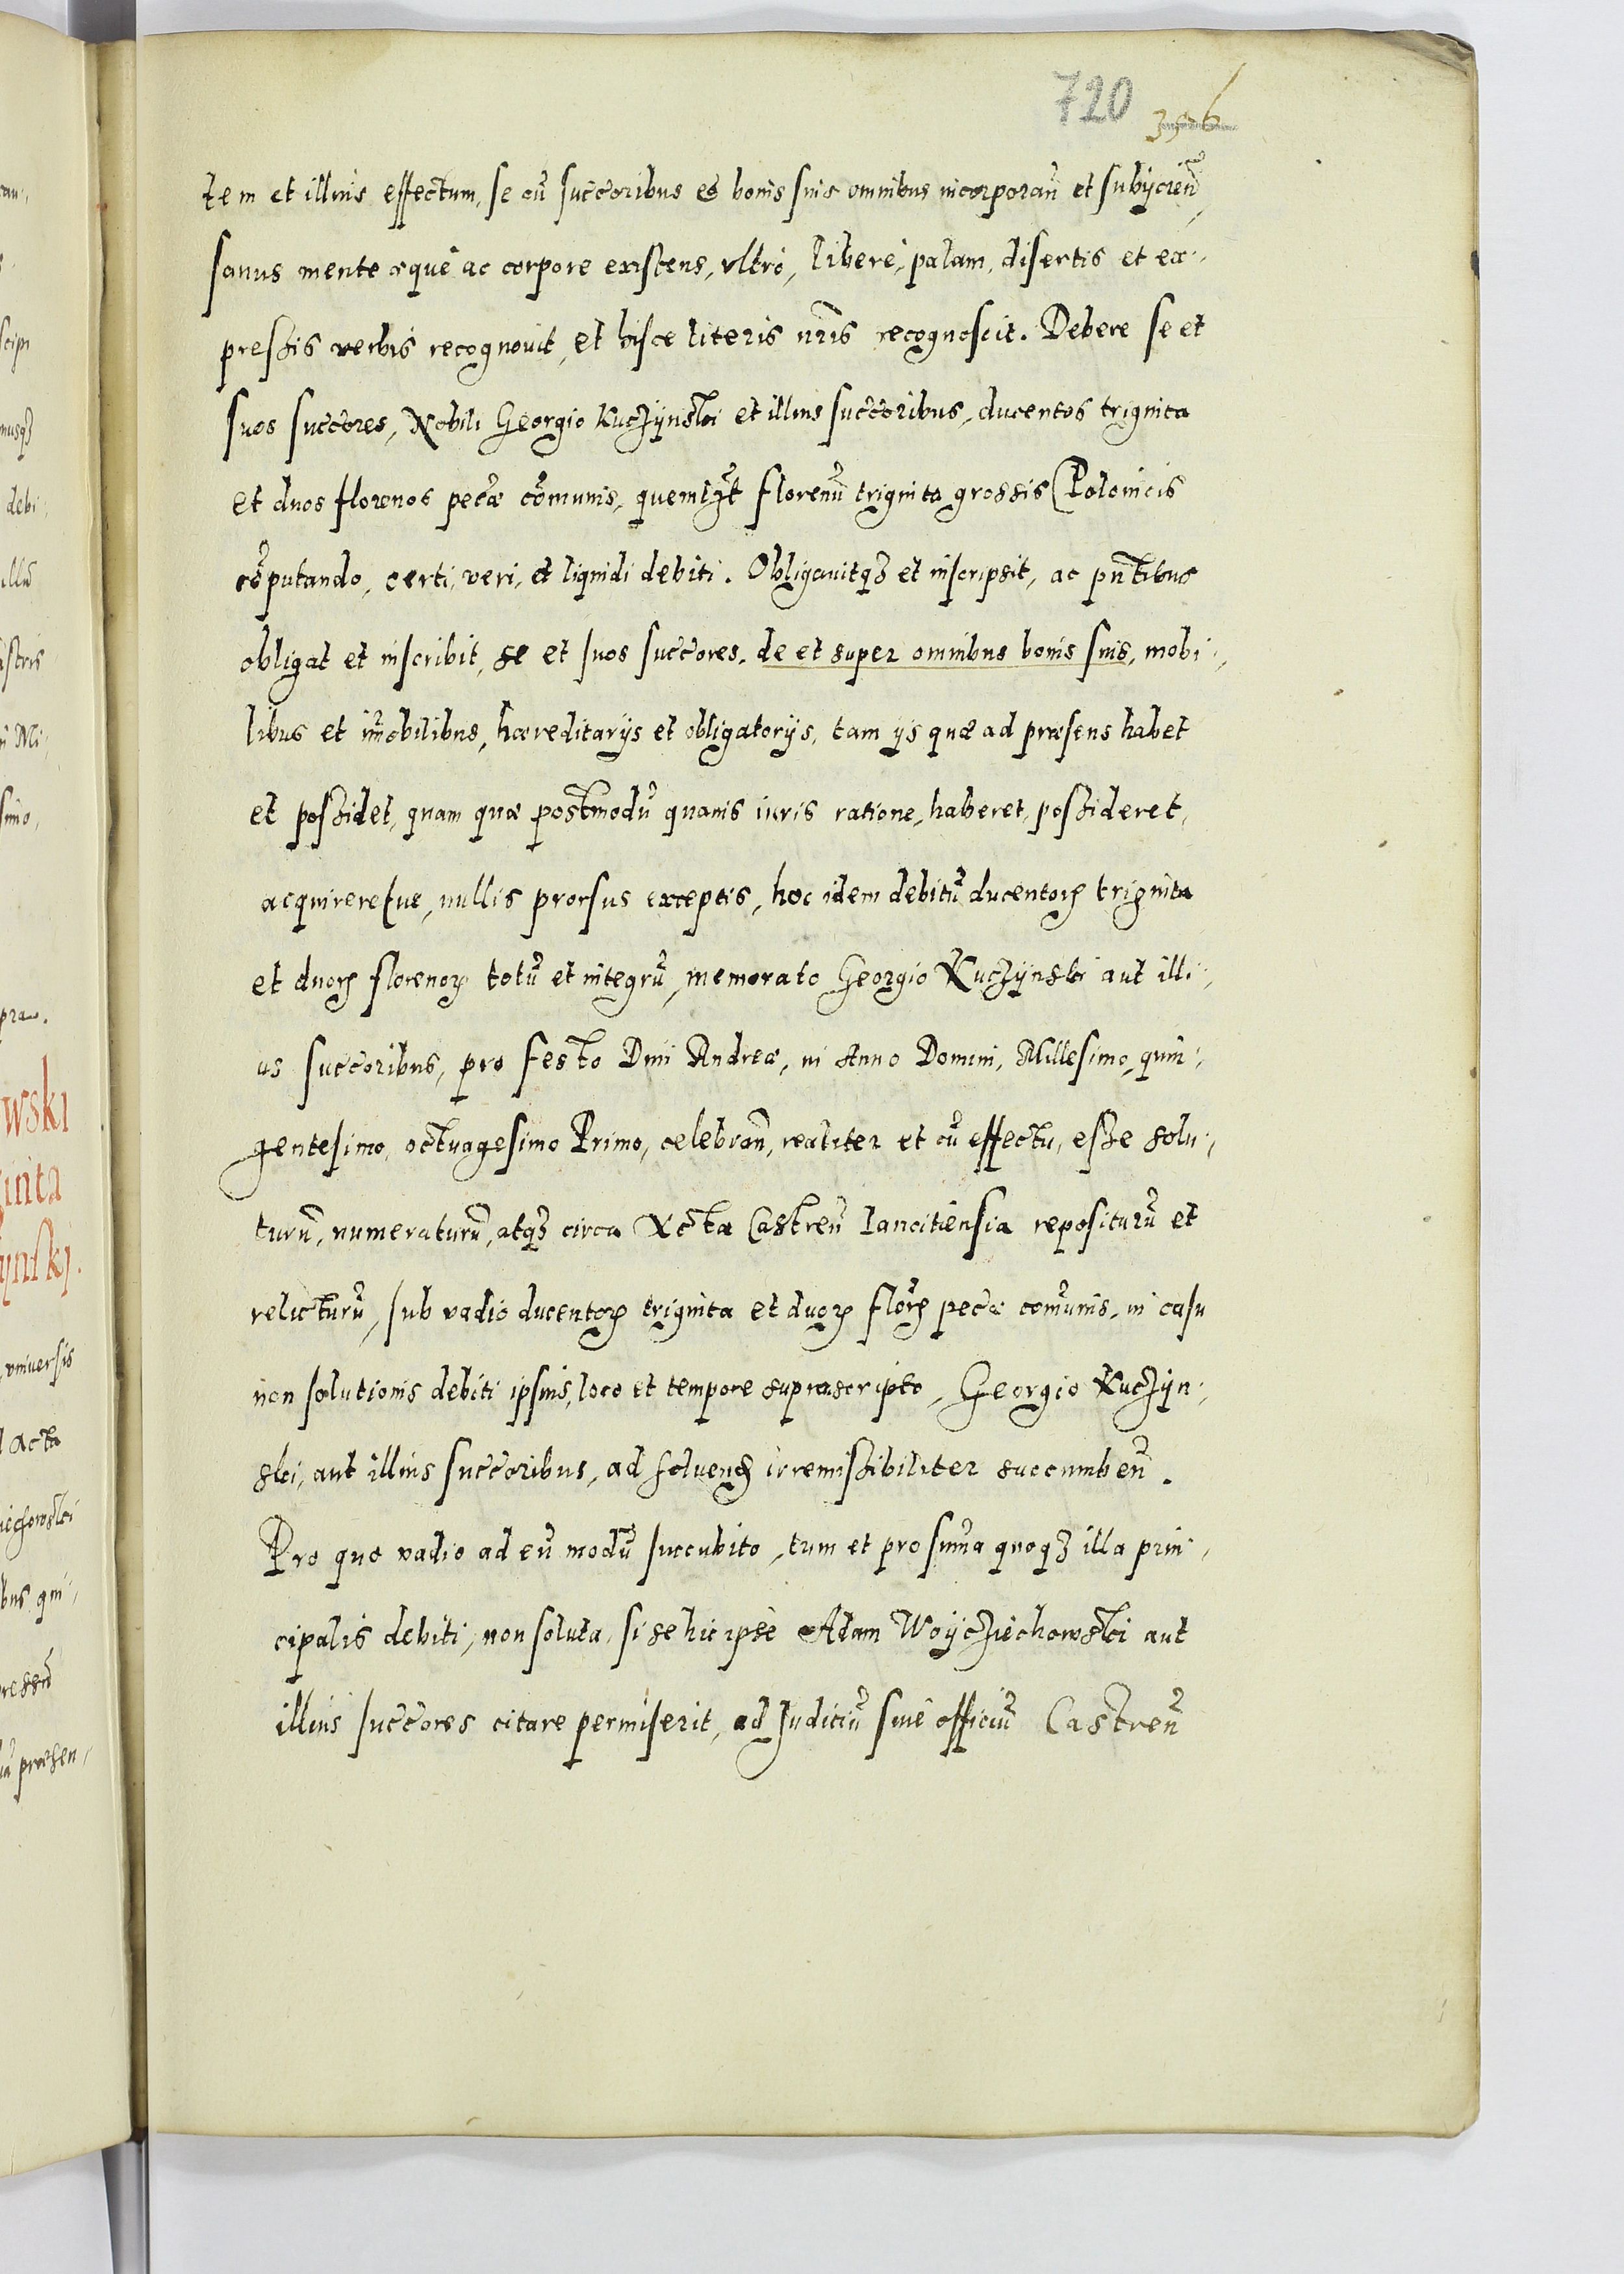 720 356
tem et illius effectum, se cū succ̄oribus et bonis suis omnibus incorporan̄ et subijcien̄,
sanus mente æquè ac corpore existens, vltrò, liberè, palam, disertis et ex-
pressis verbis recognouit, et hisce literis nr̄is recognoscit. Debere se et
suos succ̄ores, Nobili Georgio Kuczÿnski et illius succ̄oribus, ducentos triginta
et duos florenos pec̄æ com̄unis, quemlȝt florenū triginta grossis Polonicis
cōputando, certi, veri, et liquidi debiti. Obligauitqȝ et inscripsit, ac pn̄tibus
obligat et inscribit, se et suos succ̄ores, de et super omnibus bonis suis, mobi-
libus et im̄obilibus, hæreditarijs et obligatorijs, tam ijs quæ ad præsens habet
et possidet, quam quæ postmodū quauis iuris ratione, haberet, possideret,
acquireretue, nullis prorsus exceptis, hoc idem debitū ducentoꝝ triginta
et duoꝝ florenoꝝ totū et integrū, memorato Georgio Kuczÿnski aut illi-
us succ̄oribus, pro festo Diui Andreæ, in Anno Domini, Millesimo, quin-
gentesimo, octuagesimo Primo, celebran̄, realiter et cū effectu, esse solu-
turū, numeraturū, atqȝ circa Acta Castren̄ Lancitiensia repositurū et
relicturū, sub vadio ducentoꝝ triginta et duoꝝ flor̄ꝝ pec̄æ com̄unis, in casu
non solutionis debiti ipsius, loco et tempore suprascripto, Georgio Kuczÿn-
ski, aut illius succ̄oribus, ad soluenđ irremissibiliter succumben̄.
Pro quo vadio ad eū modū succubito, tum et pro sum̄a quoqȝ illa prin-
cipalis debiti, non soluta, si se hic ipse Adam Woÿcziechowski aut
illius succ̄ores citare permiserit, ad Judiciū siue officiū Castren̄